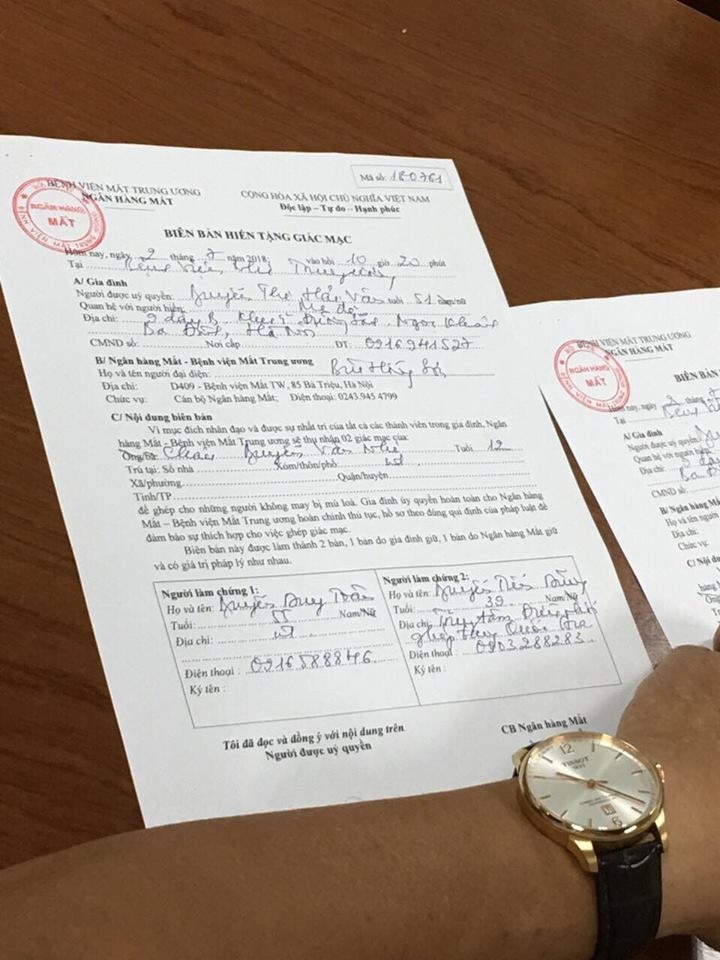 Mã số: 180761
BỆNH VIỆN MẮT TRUNG ƯƠNG
NGÂN HÀNG MẮT
CỘNG HÒA XÃ HỘI CHỦ NGHĨA VIỆT NAM
Độc lập – Tự do – Hạnh phúc
NGÂN HÀNG
MẮT
BIÊN BẢN HIẾN TẶNG GIÁC MẠC
Hôm nay, ngày 2 tháng 7 năm 2018; vào hồi 10 giờ 20 phút
Tại Bệnh viện Nhi Trung ương
A/ Gia đình
Người được uỷ quyền: Nguyễn Thị Hải Vân tuổi 51 nam/nữ
Quan hệ với người hiến: Mẹ đẻ
Địa chỉ: 9 dãy B Khu Ngọc Khánh
Ba Đình, Hà Nội
CMND số: Nơi cấp ĐT: 0916941527
B/ Ngân hàng Mắt - Bệnh viện Mắt Trung ương
Họ và tên người đại diện:
Địa chỉ: D409 - Bệnh viện Mắt TW, 85 Bà Triệu, Hà Nội
Chức vụ: Cán bộ Ngân hàng Mắt; Điện thoại: 0243.945 4799
C/ Nội dung biên bản
Vì mục đích nhân đạo và được sự nhất trí của tất cả các thành viên trong gia đình, Ngân
hàng Mắt - Bệnh viện Mắt Trung ương sẽ thu nhận 02 giác mạc của:
Ông/Bà: Cháu Nguyễn Vân Nhi Tuổi 12
Trú tại: Số nhà Xóm/thôn/phố: nt
Xã/phường Quận/huyện
Tỉnh/TP
để ghép cho những người không may bị mù loà. Gia đình uỷ quyền hoàn toàn cho Ngân hàng
Mắt – Bệnh viện Mắt Trung ương hoàn chỉnh thủ tục, hồ sơ theo đúng qui định của pháp luật để
đảm bảo sự thích hợp cho việc ghép giác mạc.
Biên bản này được làm thành 2 bản, 1 bản do gia đình giữ, 1 bản do Ngân hàng Mắt giữ
và có giá trị pháp lý như nhau.
Người làm chứng 1:
Họ và tên: Nguyễn Duy
Tuổi: 55 Nam/Nữ
Địa chỉ: nt
Điện thoại: 0916588846
Ký tên :
Người làm chứng 2:
Họ và tên: Nguyễn
Tuổi: 39 Nam/Nữ
Địa chỉ: Trung tâm Điều phối
ghép tạng Quốc Gia
Điện thoại : 0903288283
Ký tên :
Tôi đã đọc và đồng ý với nội dung trên
Người được uỷ quyền
CB Ngân hàng Mắt
BỆNH VIỆN MẮT TRUNG
NGÂN HÀNG MẮT
NGÂN HÀNG
MẮT
BIÊN BẢN
Hôm nay, ngày
Tại
A/ Gia đình
Người được uỷ quyền
Quan hệ với người
Địa chỉ:
CMND số:
B/ Ngân hàng
Họ và tên
Địa chỉ:
Chức vụ:
C/ Nội
12
TISSOT
6